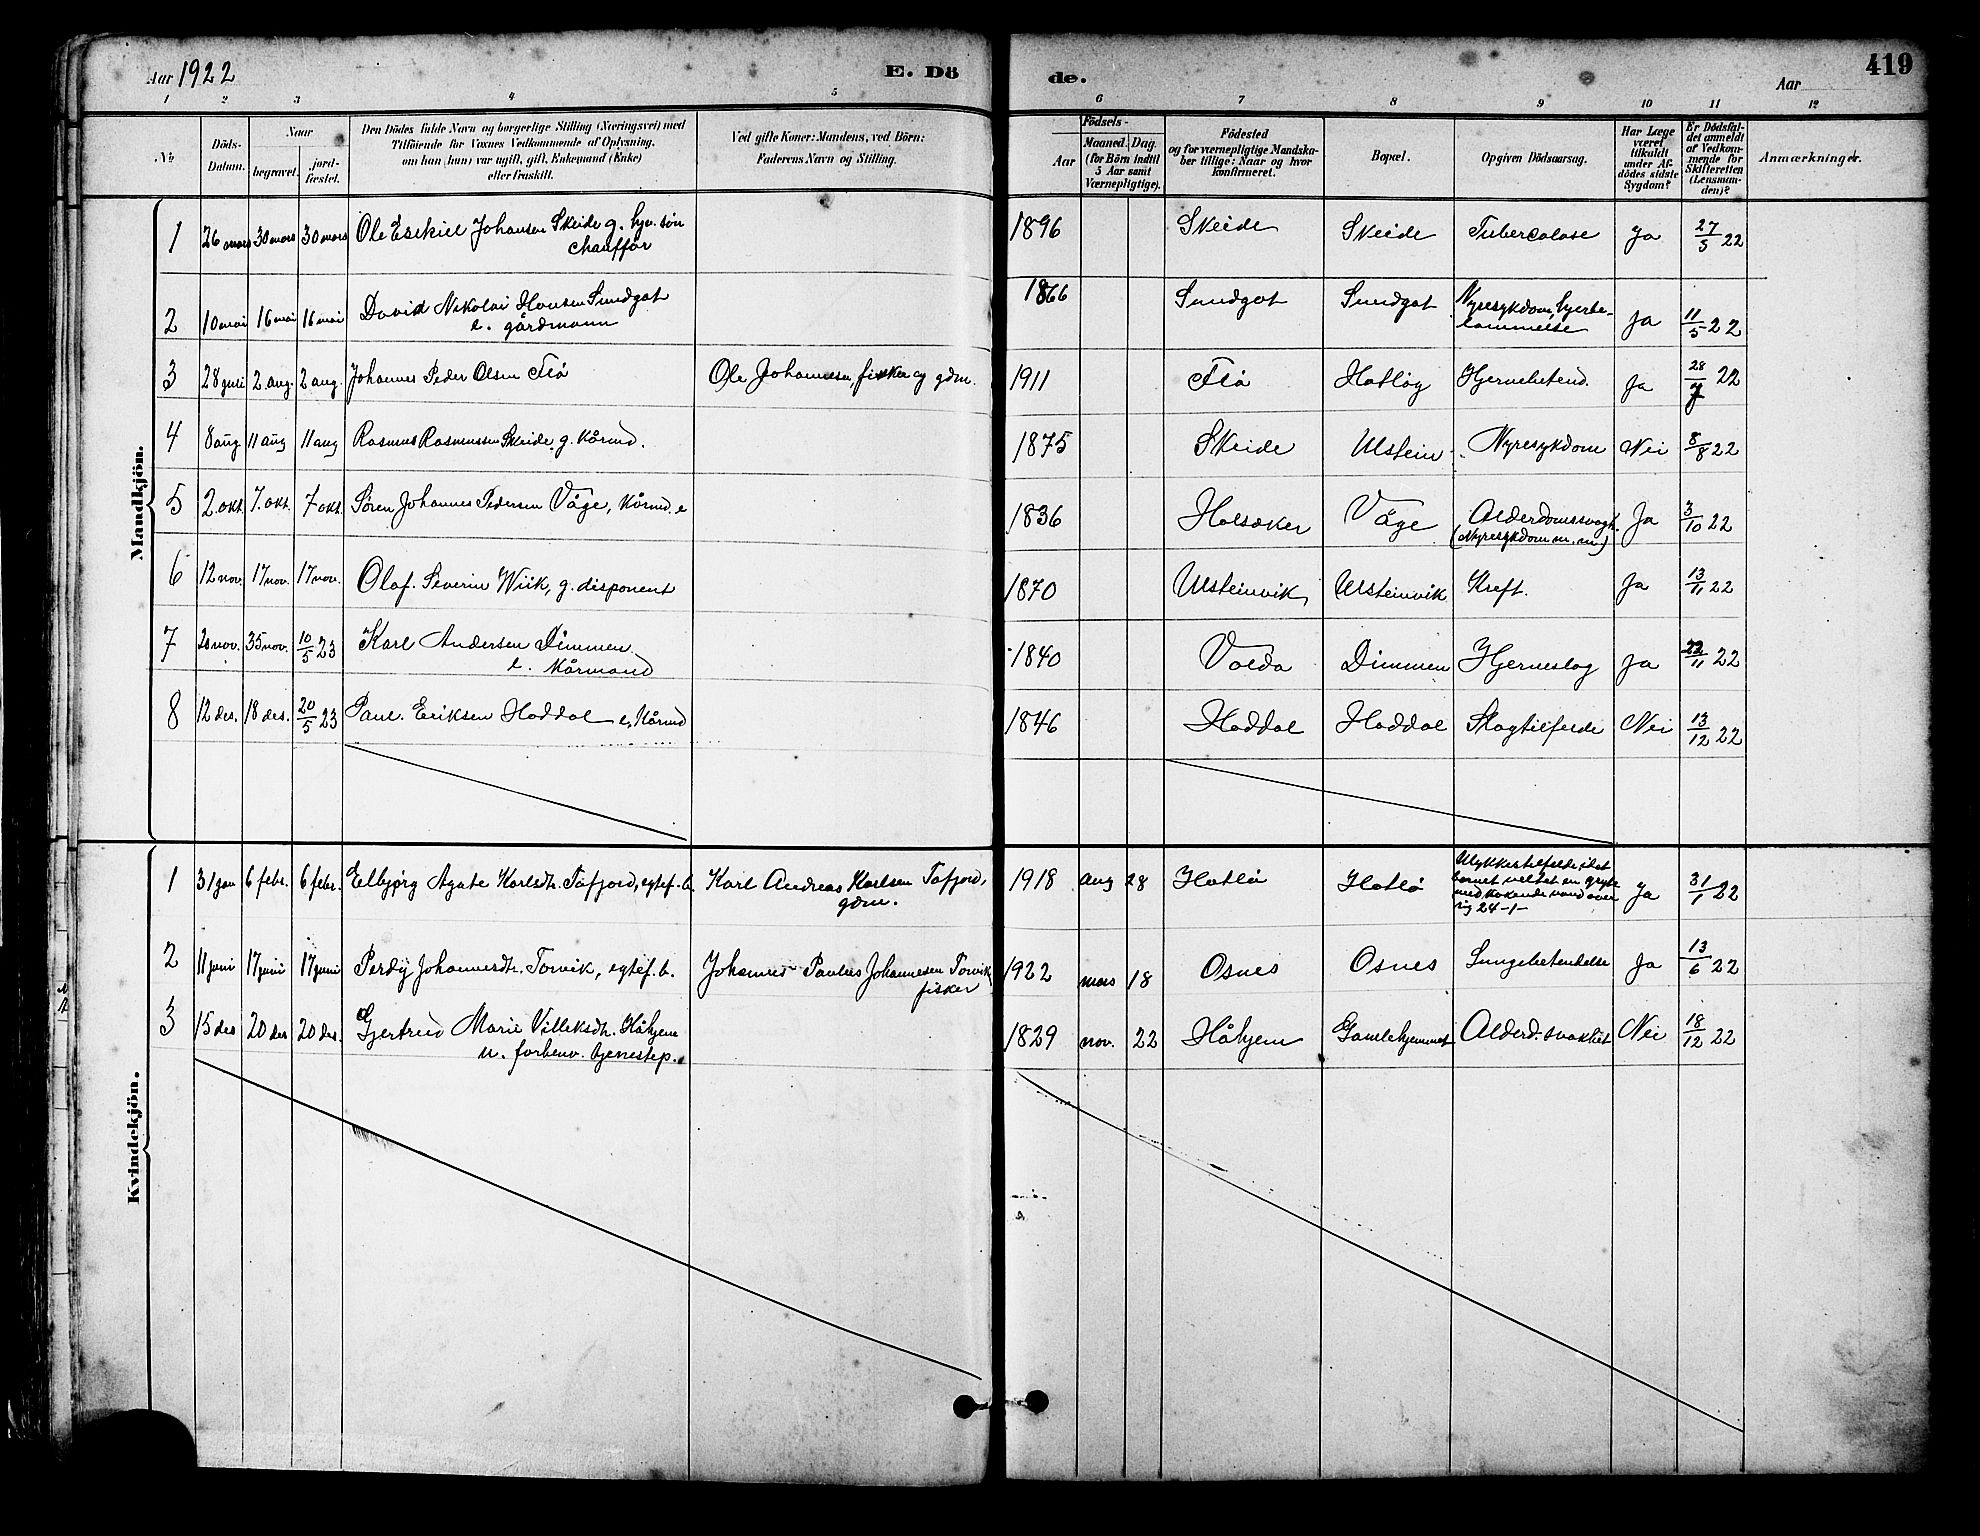 Aar 1922
E. Dö
de.
Aar
419
1 2 3 4 5 6 7 8 9 10 11 12
No.
Döds-Datum.
Naar
begravet.
jord-fæstet.
Den Dödes fulde Navn og borgerlige Stilling (Næringsvei) med
Tilföiende for Voxnes Vedkommende af Oplysning,
om han (hun) var ugift, gift, Enkemand (Enke)
eller fraskilt.
Ved gifte Koner: Mandens, ved Börn:
Faderens Navn og Stilling.
Aar
Födsels-
Maaned. Dag.
(for Börn indtil
5 Aar samt
Værnepligtige).
Födested
og for værnepligtige Mandska-
ber tillige: Naar og hvor
konfirmeret.
Bopæl.
Opgiven Dödsaarsag.
Har Læge
været
tilkaldt
under Af-
dödes sidste
Sygdom?
Er Dödsfal-
det anmeldt
af Vedkom-
mende for
Skifteretten
(Lensman-
den)?
Anmærkninger.
Mandkjön.
1 26 mars 30 mars 30 mars Ole Esekiel Johansen Skeide g. 1896 Skeide Skeide Tuberculose Ja 27/5 22
chauffør
2 10 mai 16 mai 16 mai David Nikolai Hansen Sundgot 1866 Sundgot Sundgot Nyresykdom, hjerte- Ja 11/5 22
e. gårdmann lammelse
3 28 juli 2 aug. 2 aug. Johannes Peder Olsen Flø Ole Johannesen, fisker og gdm. 1911 Flø Hatløy Hjernebetend. Ja 28/7 22
4 8 aug 11 aug 11 aug Rasmus Rasmussen Skeide, g. kårmd. 1875 Skeide Ulstein Nyresykdom Nei 8/8 22
5 2 okt. 7. okt. 7 okt. Søren Johannes Pedersen Våge, kårmd. e 1836 Holsæker Våge Alderdomssvagh. Ja 3/10 22
(Nyresykdom m. m)
6 12 nov. 17 nov. 17 nov. Olaf. Severin Wiik, g. disponent 1870 Ulsteinvik Ulsteinvik Kreft. Ja 13/11 22
7 20 nov. 35 nov. 10/5 23 Karl Andersen Dimmen 1840 Volda Dimmen Hjerneslag Ja 22/11 22
e. kårmand
8 12 des. 18 des. 20/5 23 Paul. Eriksen Haddal e, kårmd 1846 Haddal Haddal Slagtilfelde Nei 13/12 22
Kvindekjön.
1 31 jan 6 febr. 6 febr. Elbjørg Agate Karlsdtr. Tafjord, egtef. b. Karl Andreas Karlsen Tafjord, 1918 aug 28 Hatlø Hatlø Ulykkestilfelde, idet Ja 31/1 22
gdm.
barnet veltet en gryte
med kokende vand over
sig 24-1-
2 11 juni 17 juni 17 juni Perdy Johannesdtr. Torvik, egtef. b. Johannes Paulus Johannesen Torvik 1922 mars 18 Osnes Osnes Lungebetendelse Ja 13/6 22
fisker
3 15 des 20 des 20 des. Gjertrud Marie Villeksdtr. Håhjem 1829 nov. 22 Håhjem Gamlehjemmet Alderd. svakhet Nei 18/12 22
u. forhenv. tjenestep.